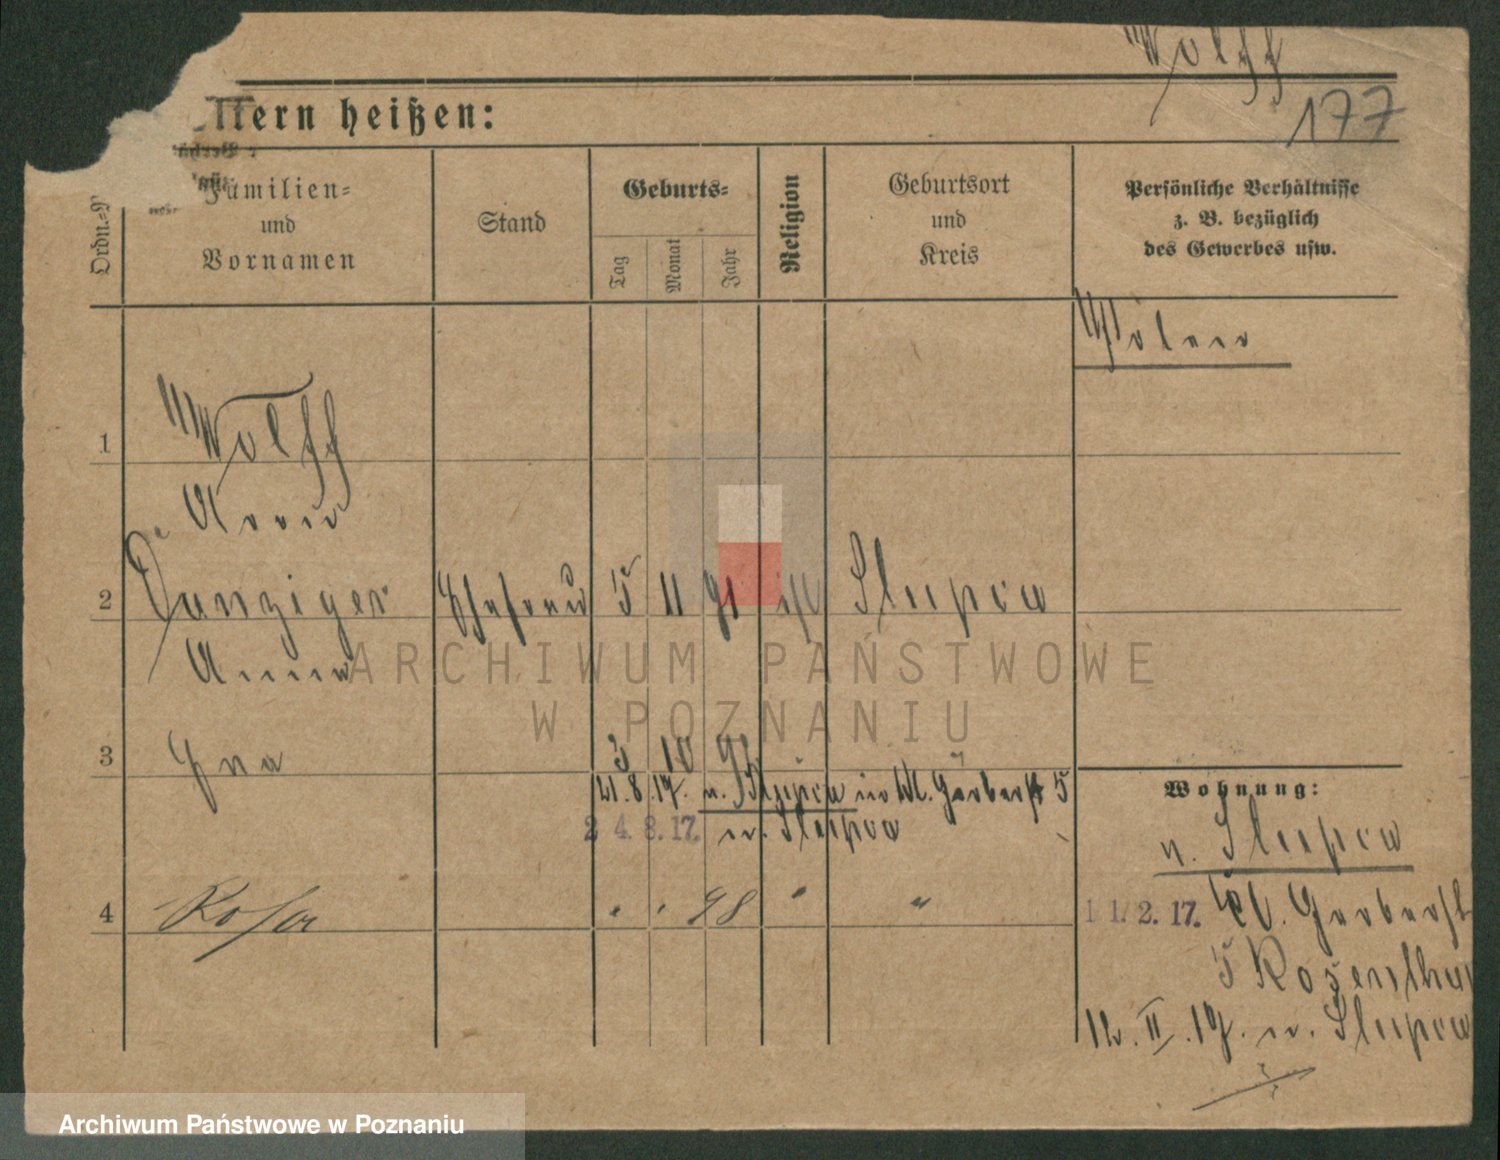 Wolff
177
ltern heißen:
Ordn.=N
Familien=
und
Vornamen
Stand
Geburts=
Tag
Monat
Jahr
Religion
Geburtsort
und
Kreis
Persönliche Verhältnisse
z. B. bezüglich
des Gewerbes usw.
1
Wolff
2
Danziger Ehefrau 5 11 91 isr Slupca
Anna
3
5 10 9
21.8.17. n. Slupca in Kl. Gerberst 5
2 4. 8. 17. n. Slupca
Wohnung:
n. Slupca
4
Rosa " " 98 " "
1 1. 2. 17. Kl. Gerberst
5 Rosenthal
12. II. 17. n. Slupca
ARCHIWUM PAŃSTWOWE
W POZNANIU
Archiwum Państwowe w Poznaniu